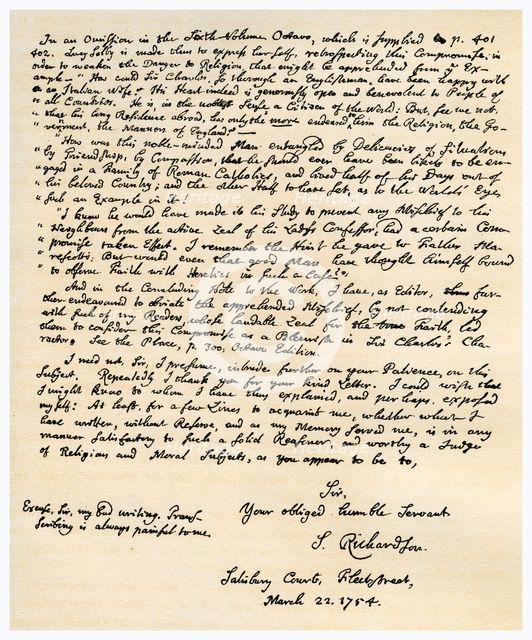 In an Omission in the Sixth Volume Octavo, which is supplied p. 401
402. Lucy Selby is made thus to express herself, retrospecting this Compromise; in
order to weaken the Danger to Religion, that might be apprehended from ye Ex-
ample— "How could Sir Charles, so thorough an Englishman, have been happy with
" an Italian Wife? His Heart indeed is generously open and benevolent to People of
" all Countries. He is, in the noblest Sense a Citizen of the World: But, see we not,
" that his long Residence abroad, has only the more endeared him the Religion, the Go-
" vernment, the Manners of England?—
" How was this noble-minded Man entangled by Delicacies of Situation,
" by Friendship, by Compassion, that he should ever have been likely to be en-
" gaged in a Family of Roman Catholics, and lived half of his Days out of
" his beloved Country; and the other Half to have set, as to the World's Eye,
" such an Example in it.
" I know he would have made it his Study to prevent any Mischief to his
" Neighbours from the active Zeal of his Lady's Confessor, had a certain Com-
" promise taken Effect. I remember the Hint he gave to Father Ma-
" rescotti: But would even that good Man have thought himself bound
" to observe Faith with Heretics in such a Case?"
And in the Concluding Note to the Work, I have, as Editor, fur-
ther endeavoured to obviate the apprehended Mischief, by not contending
with such of my Readers, whose laudable Zeal for the true Faith, led
them to consider this Compromise as a Blemish in Sir Charles's Cha-
racter. See the Place, p. 300, Octavo Edition.
I need not, Sir, I presume, intrude further on your Patience, on this
Subject. Repeatedly I thank you for your kind Letter. I could wish that
I might know to whom I have thus explained, and perhaps, exposed
myself: At least, for a few Lines to acquaint me, whether what I
have written, without Reserve, and as my Memory served me, is in any
manner satisfactory to such a solid Reasoner, and worthy a Judge
of Religious and Moral Subjects, as you appear to be to,
Sir,
Your obliged humble Servant
S. Richardson.
Excuse, Sir, my bad writing. Tran-
scribing is always painful to me.
Salisbury Court, Fleetstreet,
March 22. 1754.
heritage
heritage